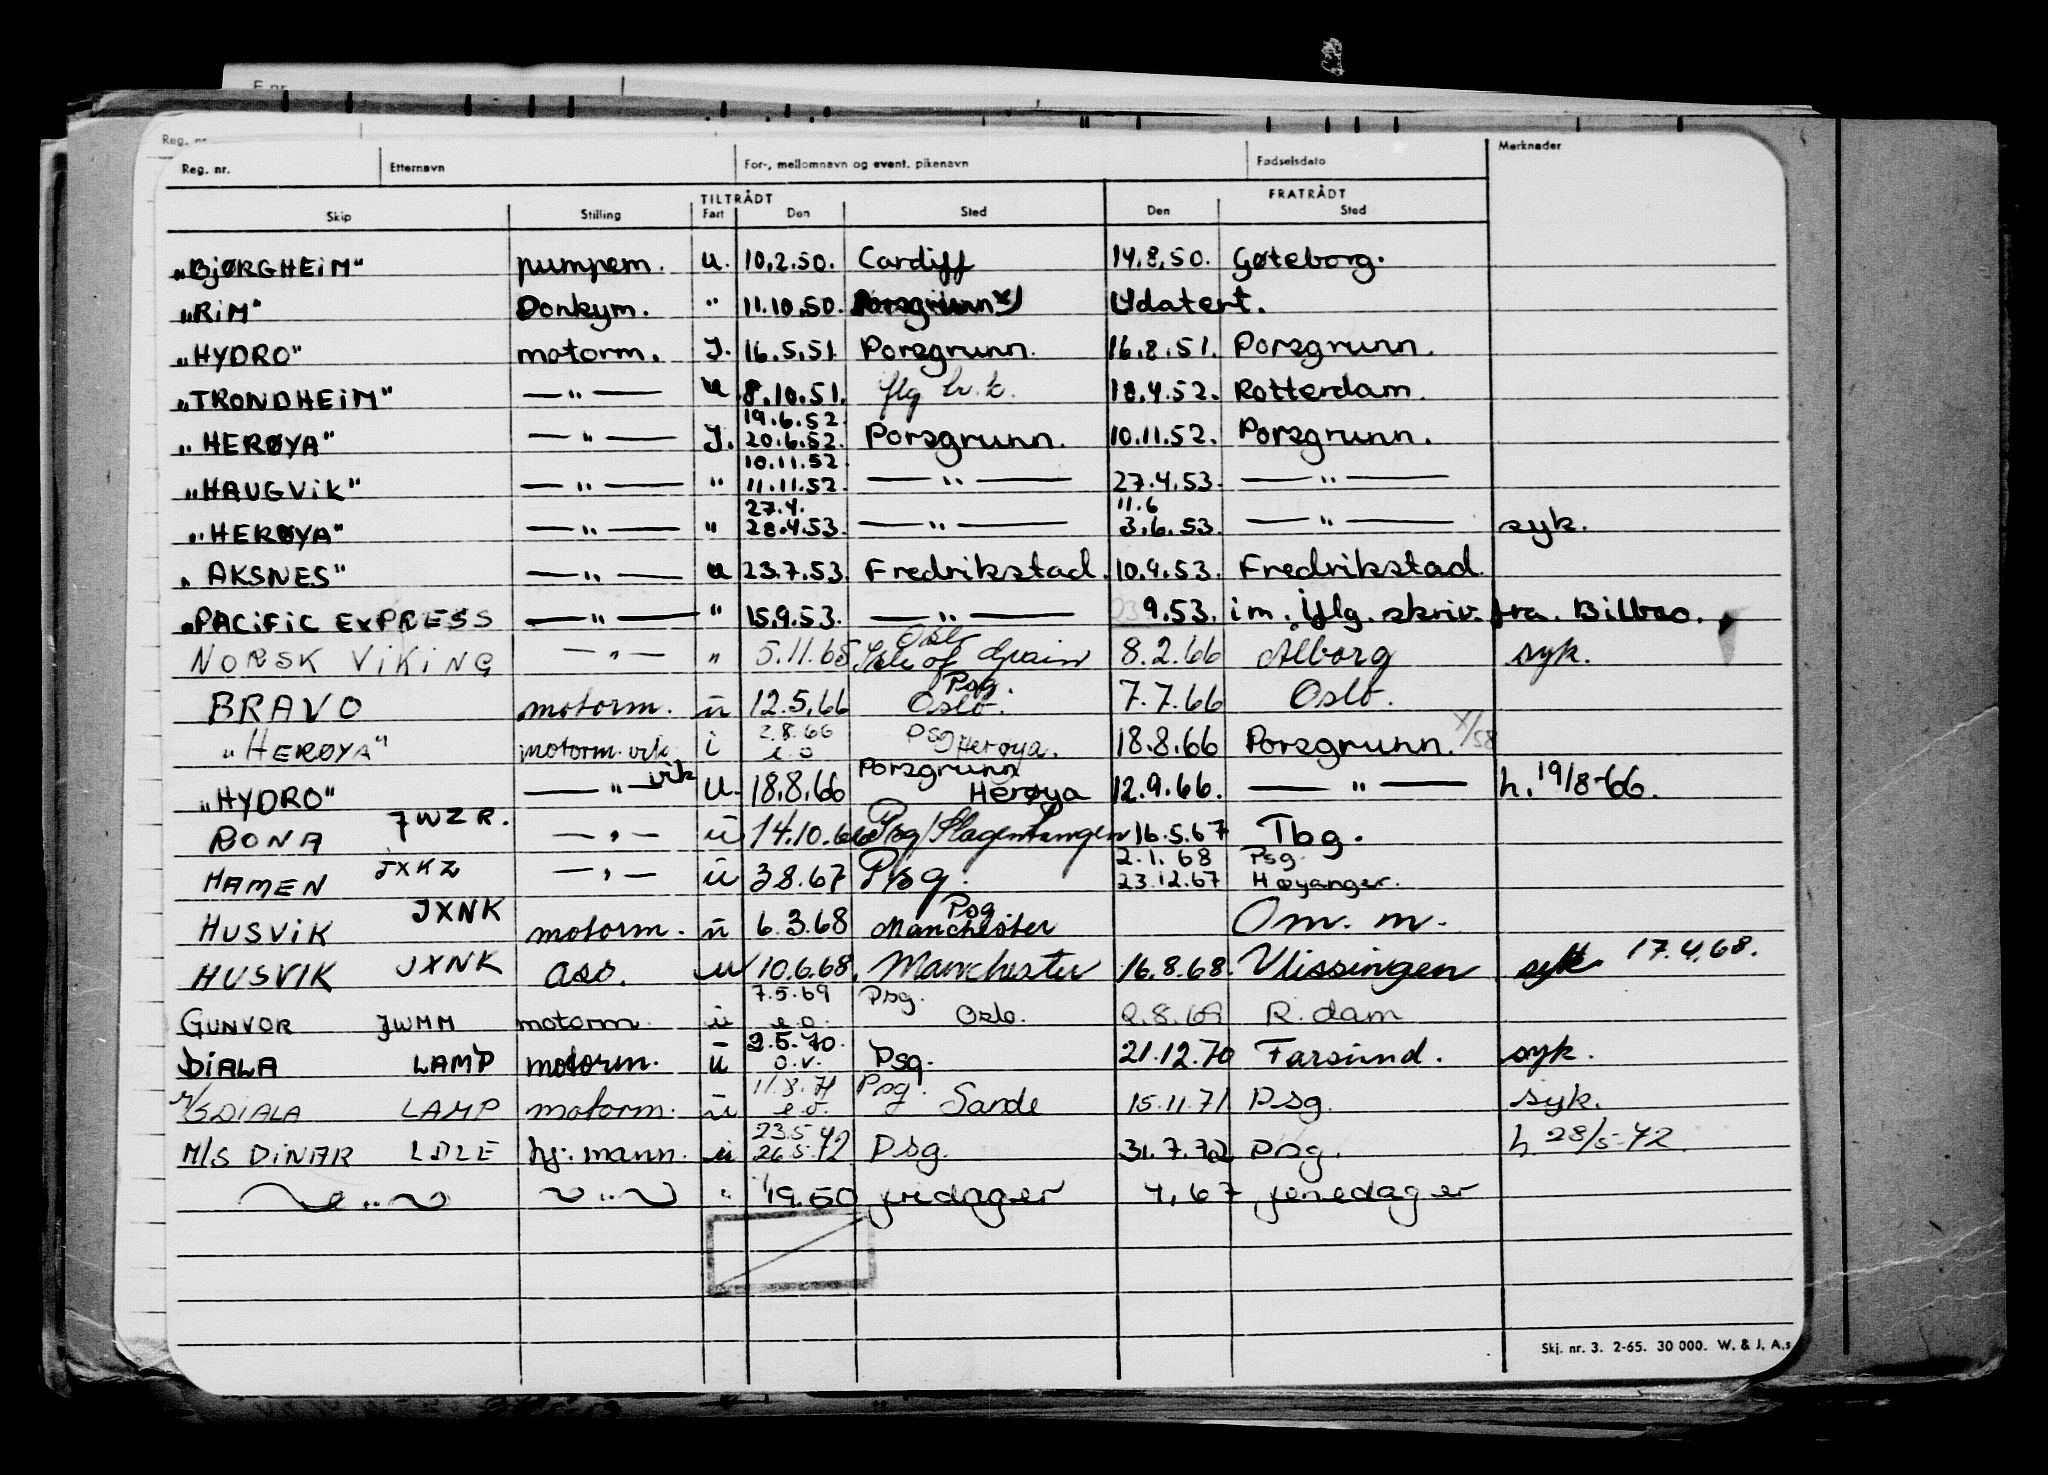 Reg. nr.
Reg. nr. Etternavn For-, mellomnavn og event. pikenavn Fødselsdato Merknader
TILTRÅDT FRATRÅDT
Skip Stilling Fart Den Sted Den Sted
„BJØRGHEIM" pumpem. u. 10.2.50. Cardiff 14.8.50. Gøteborg.
„RIM" Donkym. " 11.10.50. Porsgrunn x) Udatert.
„HYDRO" motorm. I. 16.5.51 Porsgrunn. 16.8.51. Porsgrunn.
„TRONDHEIM" —"— u 8.10.51. flg hr.k. 18.4.52. Rotterdam.
19.6.52.
„HERØYA" —"— I. 20.6.52. Porsgrunn. 10.11.52. Porsgrunn.
10.11.52
„HAUGVIK" —"— " 11.11.52. —"— 27.4.53. —"—
27.4. 11.6
„HERØYA" —"— " 28.4.53. —"— 3.6.53. —"— syk.
„AKSNES" —"— u 23.7.53. Fredrikstad. 10.9.53. Fredrikstad.
„PACIFIC EXPRESS —"— " 15.9.53. —"— 9.53. i m. iflg. skriv. fra. Bilbao.
Oslo
NORSK VIKING —"— " 5.11.65 Isle of Grain 8.2.66 Ålborg syk.
Psg.
BRAVO motorm. ū 12.5.66 Oslo. 7.7.66 Oslo.
2.8.66 Psg
„HERØYA" motorm. vik i e.o Herøya. 18.8.66 Porsgrunn. X/58
vik Porsgrunn
„HYDRO" —"— u. 18.8.66 Herøya 12.9.66. —"— h. 19/8-66.
BONA JWZR. —"— ū 14.10.66 Psg/Slagentangen 16.5.67 Tbg.
2.1.68 Psg.
HAMEN JXKZ —"— ū 3.8.67 Psg. 23.12.67 Høyanger.
Psg.
HUSVIK JXNK motorm. ū 6.3.68 Manchester Om. m.
HUSVIK JXNK ass. u 10.6.68. Manchester 16.8.68. Vlissingen syk 17.4.68.
7.5.69 Psg.
GUNVOR JWMM motorm. ū e.o. Oslo. 2.8.69 R.dam
2.5.70.
DIALA LAMP motorm. ū o.v. Psg. 21.12.70 Farsund. syk.
11.8.71 Psg.
M/S DIALA LAMP motorm. ū e.o. Sande 15.11.71 Psg. syk.
23.5
M/S DINAR LDLE hj. mann. u 26.5.72 Psg. 31.7.72 Psg. h. 28/5-72.
—"— —"— " 19.50 fridager 4,67 fridager
Skj. nr. 3. 2-65. 30 000. W. & J. A.s